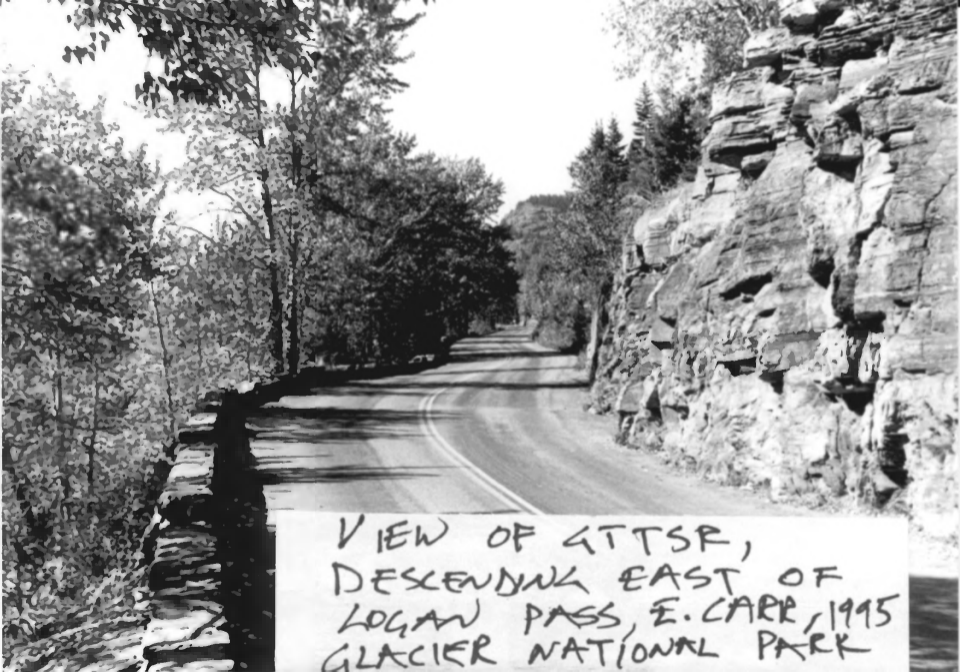 VIEW OF GTTSR,
DESCENDING EAST OF
LOGAN PASS, E. CARR, 1995
GLACIER NATIONAL PARK